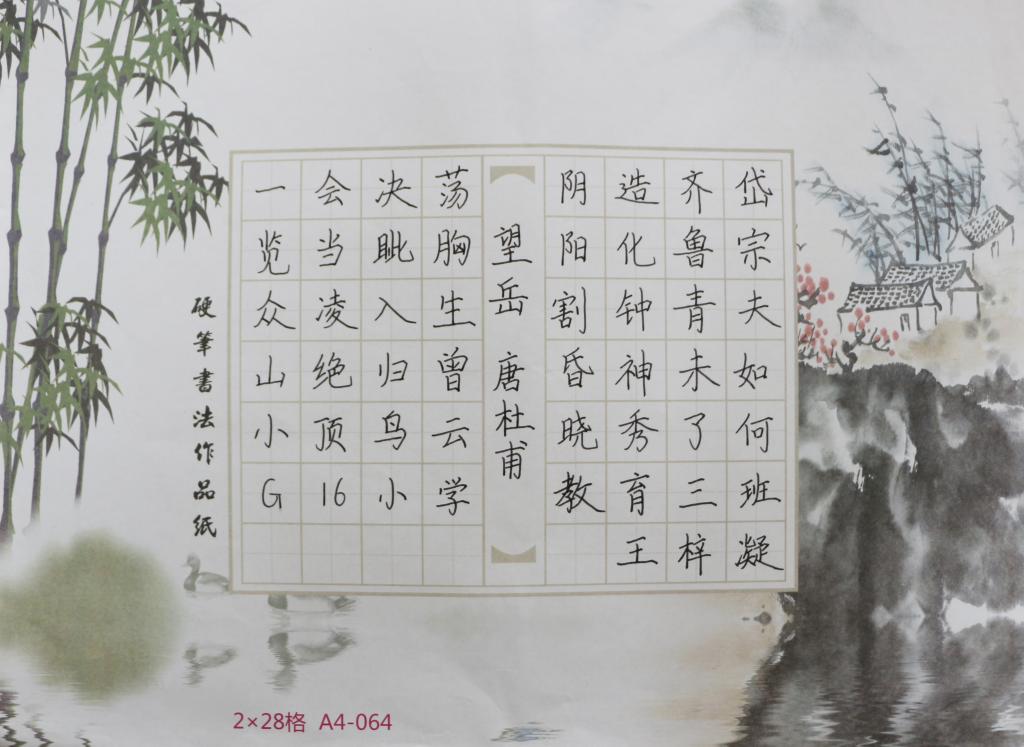 岱宗夫如何班凝
齐鲁青未了三梓
造化钟神秀育王
阴阳割昏晓教
望岳 唐杜甫
荡胸生曾云学
决眦入归鸟小
会当凌绝顶16
一览众山小G
硬筆書法作品紙
2×28格 A4-064